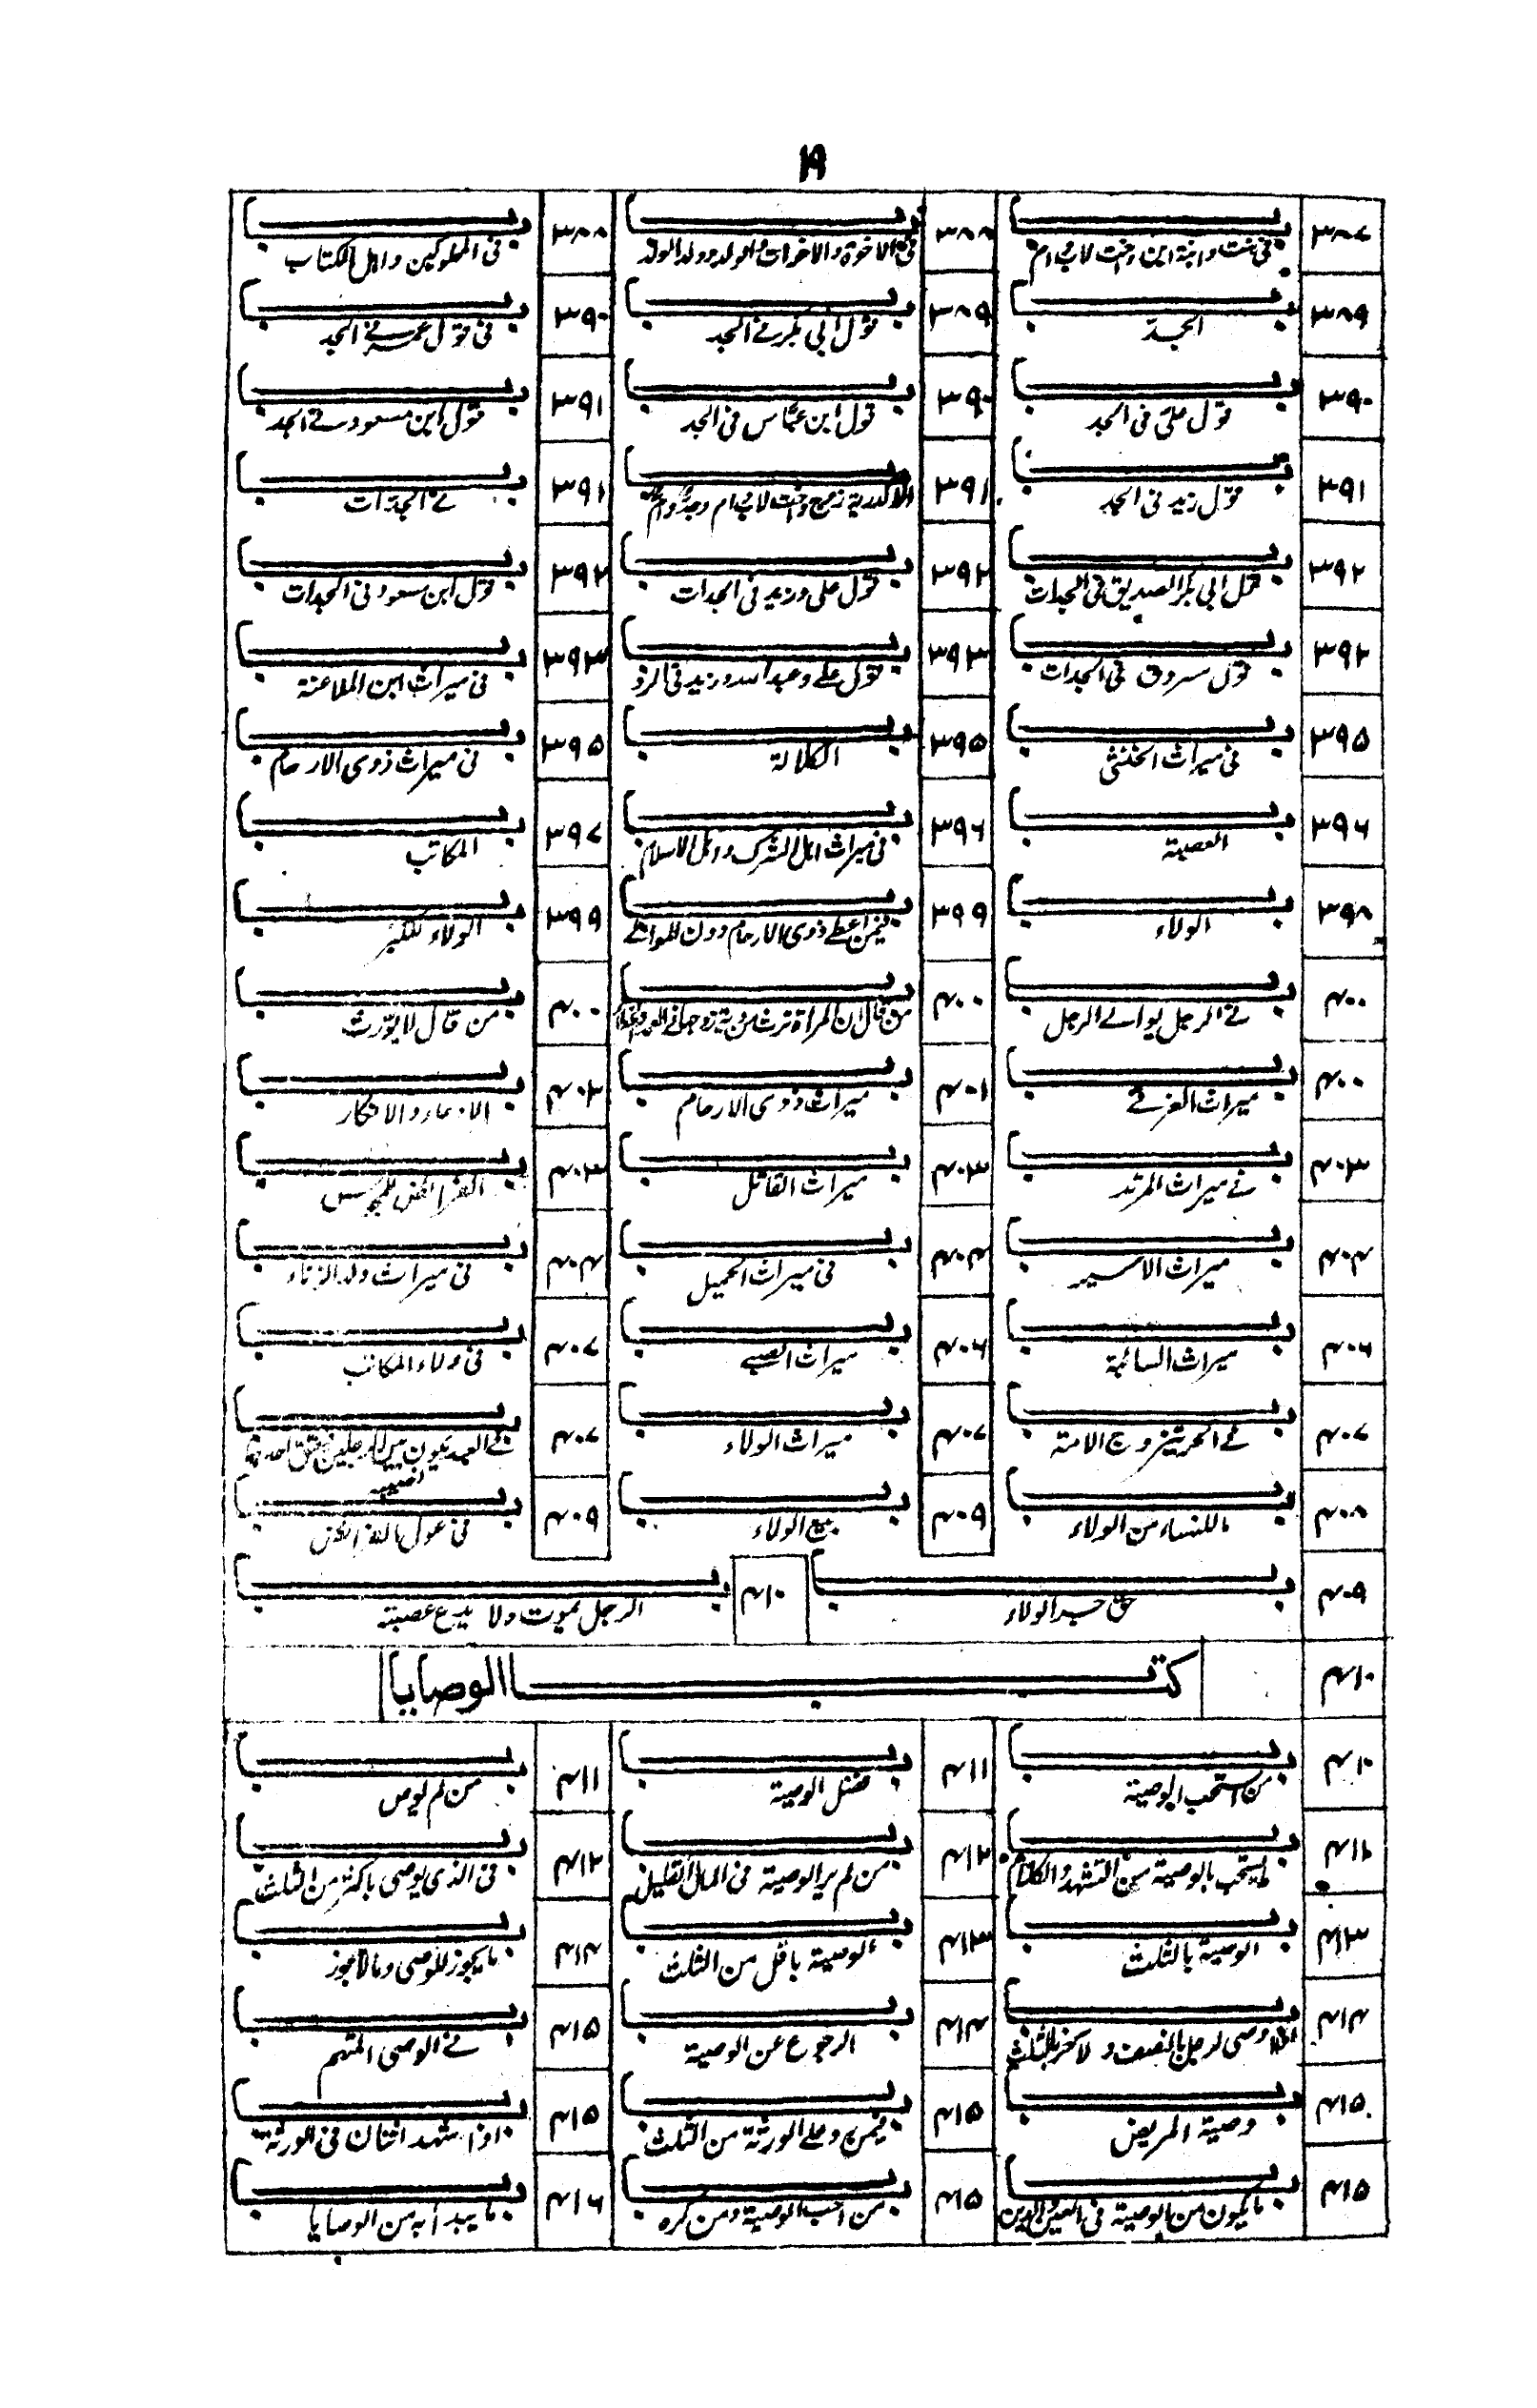 ١٩
٣٨٧ باب في بنت وابنة ابن واخت لاب وام
٣٨٨ باب في الاخوة والاخوات والولد وولد الولد
٣٨٨ باب في المملوكين واهل الكتاب
٣٨٩ باب الجد
٣٨٩ باب قول ابي بكر في الجد
٣٩٠ باب في قول عمر في الجد
٣٩٠ باب قول علي في الجد
٣٩٠ باب قول ابن عباس في الجد
٣٩١ باب قول ابن مسعود في الجد
٣٩١ باب قول زيد في الجد
٣٩١ باب الاكدرية زوج واخت لاب وام وجد وام
٣٩١ باب في الجدات
٣٩٢ باب قول ابي بكر الصديق في الجدات
٣٩٢ باب قول علي وزيد في الجدات
٣٩٢ باب قول ابن مسعود في الجدات
٣٩٢ باب قول مسروق في الجدات
٣٩٣ باب قول علي وعبد الله وزيد في الرد
٣٩٣ باب في ميراث ابن الملاعنة
٣٩٥ باب في ميراث الخنثى
٣٩٥ باب الكلالة
٣٩٥ باب في ميراث ذوى الارحام
٣٩٦ باب العصبة
٣٩٦ باب في ميراث اهل الشرك واهل الاسلام
٣٩٧ باب المكاتب
٣٩٨ باب الولاء
٣٩٩ باب فيمن اعطى ذوى الارحام دون الموالي
٣٩٩ باب الولاء للكبر
٤٠٠ باب في الرجل يوالي الرجل
٤٠٠ باب من قال ان المرأة ترث من دية زوجها في العمد والخطأ
٤٠٠ باب من قال لا يورث
٤٠٠ باب ميراث الغرقى
٤٠١ باب ميراث ذوى الارحام
٤٠٢ باب الادعاء والانكار
٤٠٣ باب في ميراث المرتد
٤٠٣ باب ميراث القاتل
٤٠٣ باب الفرائض للمجوس
٤٠٤ باب ميراث الاسير
٤٠٤ باب في ميراث الحميل
٤٠٤ باب في ميراث ولد الزناء
٤٠٦ باب ميراث السائبة
٤٠٦ باب ميراث الصبي
٤٠٧ باب في ولاء المكاتب
٤٠٧ باب في الحر يتزوج الامة
٤٠٧ باب ميراث الولاء
٤٠٧ باب في العبد يكون بين الرجلين فيعتق احدهما نصيبه
٤٠٨ باب ما للنساء من الولاء
٤٠٩ باب بيع الولاء
٤٠٩ باب في عول الفرائض
٤٠٩ باب حق جر الولاء
٤١٠ باب الرجل يموت ولا يدع عصبة
٤١٠ كتاب الوصايا
٤١٠ باب من استحب الوصية
٤١١ باب فضل الوصية
٤١١ باب من لم يوص
٤١٢ باب ما يستحب بالوصية من التشهد والكلام
٤١٢ باب من لم ير الوصية في المال القليل
٤١٢ باب في الذي يوصى باكثر من الثلث
٤١٣ باب الوصية بالثلث
٤١٣ باب الوصية باقل من الثلث
٤١٤ باب ما يجوز للوصى وما لا يجوز
٤١٤ باب اذا اوصى لرجل بالنصف ولآخر بالثلث
٤١٤ باب الرجوع عن الوصية
٤١٥ باب في الوصى المتهم
٤١٥ باب وصية المريض
٤١٥ باب فيمن رد على الورثة من الثلث
٤١٥ باب اذا شهد اثنان في الورثة
٤١٥ باب ما يكون من الوصية في العين والدين
٤١٥ باب من احب الوصية ومن كره
٤١٦ باب ما يبدأ به من الوصايا